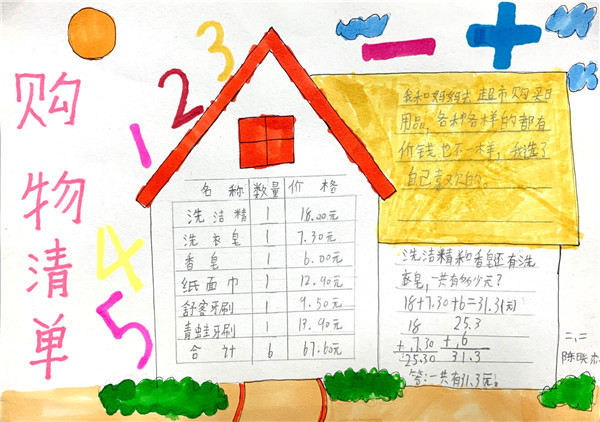 购物清单
1 2 3 4 5
− +
名称 数量 价格
洗洁精 1 18.00元
洗衣皂 1 7.30元
香皂 1 6.00元
纸面巾 1 12.90元
舒客牙刷 1 9.50元
青蛙牙刷 1 13.90元
合计 6 67.60元
我和妈妈去超市购买日
用品,各种各样的都有
价钱也不一样,我选了
自己喜欢的。
洗洁精和香皂还有洗
衣皂,一共有多少元?
18+7.30+6=31.3(元)
18 25.3
+ 7.30 + 6
25.30 31.3
答:一共有31.3元。
二,二